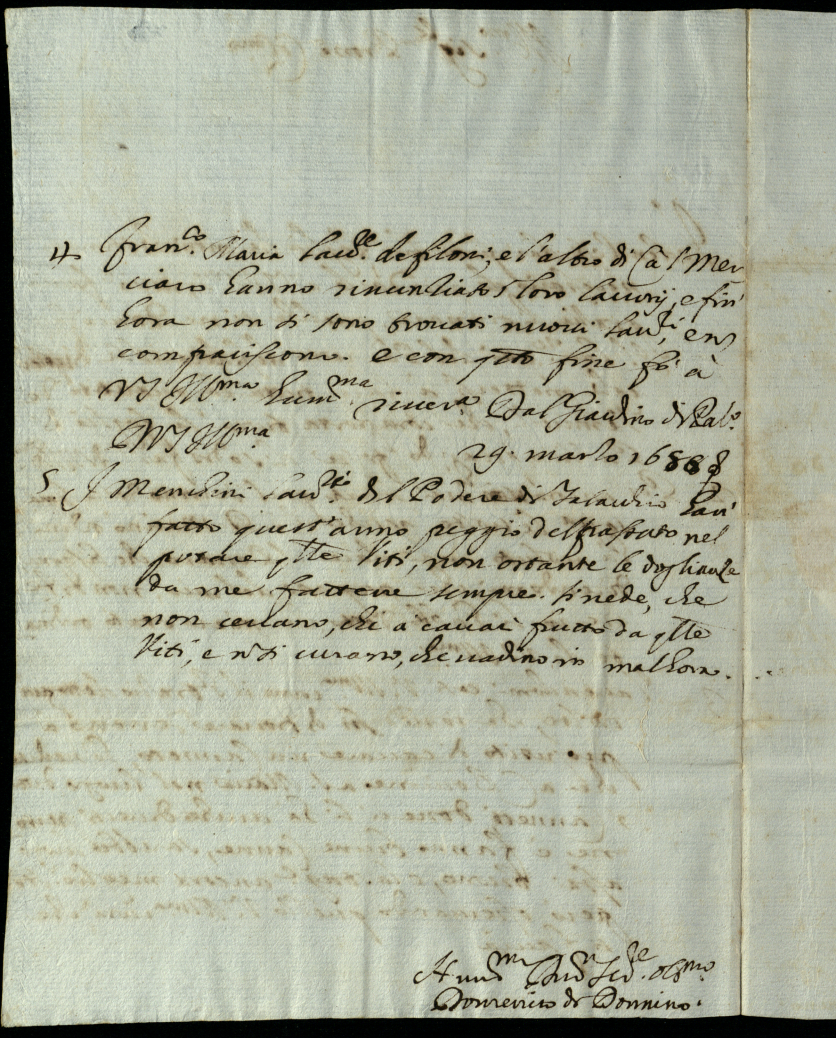 4 Fran.co Maria Lau.re de filoni, e l'altro di Cà l Mer
ciaro hanno rinuntiato i loro lauorij, e fin'
hora non si sono trouati nuoui lau.ri, e n
compariscono. e con q.to fine fò à
VS Ill.ma hum.ma riuer.a Dal Giardino di Pal.o
DVS Ill.ma
29. marzo 1688
5. I Menchini lau.ri del Podere di han'
fatto quest'anno peggio del passato nel
potare q.lle Viti, non ostante le doglianze
da me fattene sempre. Si uede, che
non cercano, che a cauar frutto da q.lle
Viti, e n si curano, che uadino in mal'hora.
Hum.mo Seru.re obl.mo
Domenico de Donnino.